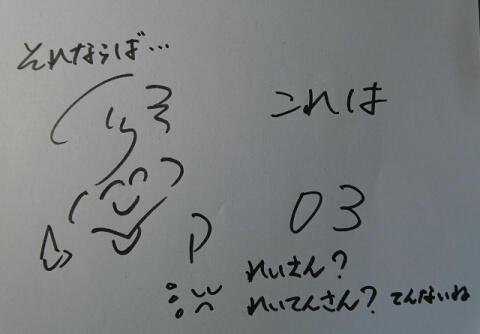 それならば…
これは
03
P
れいさん?
れいてんさん? てんないね